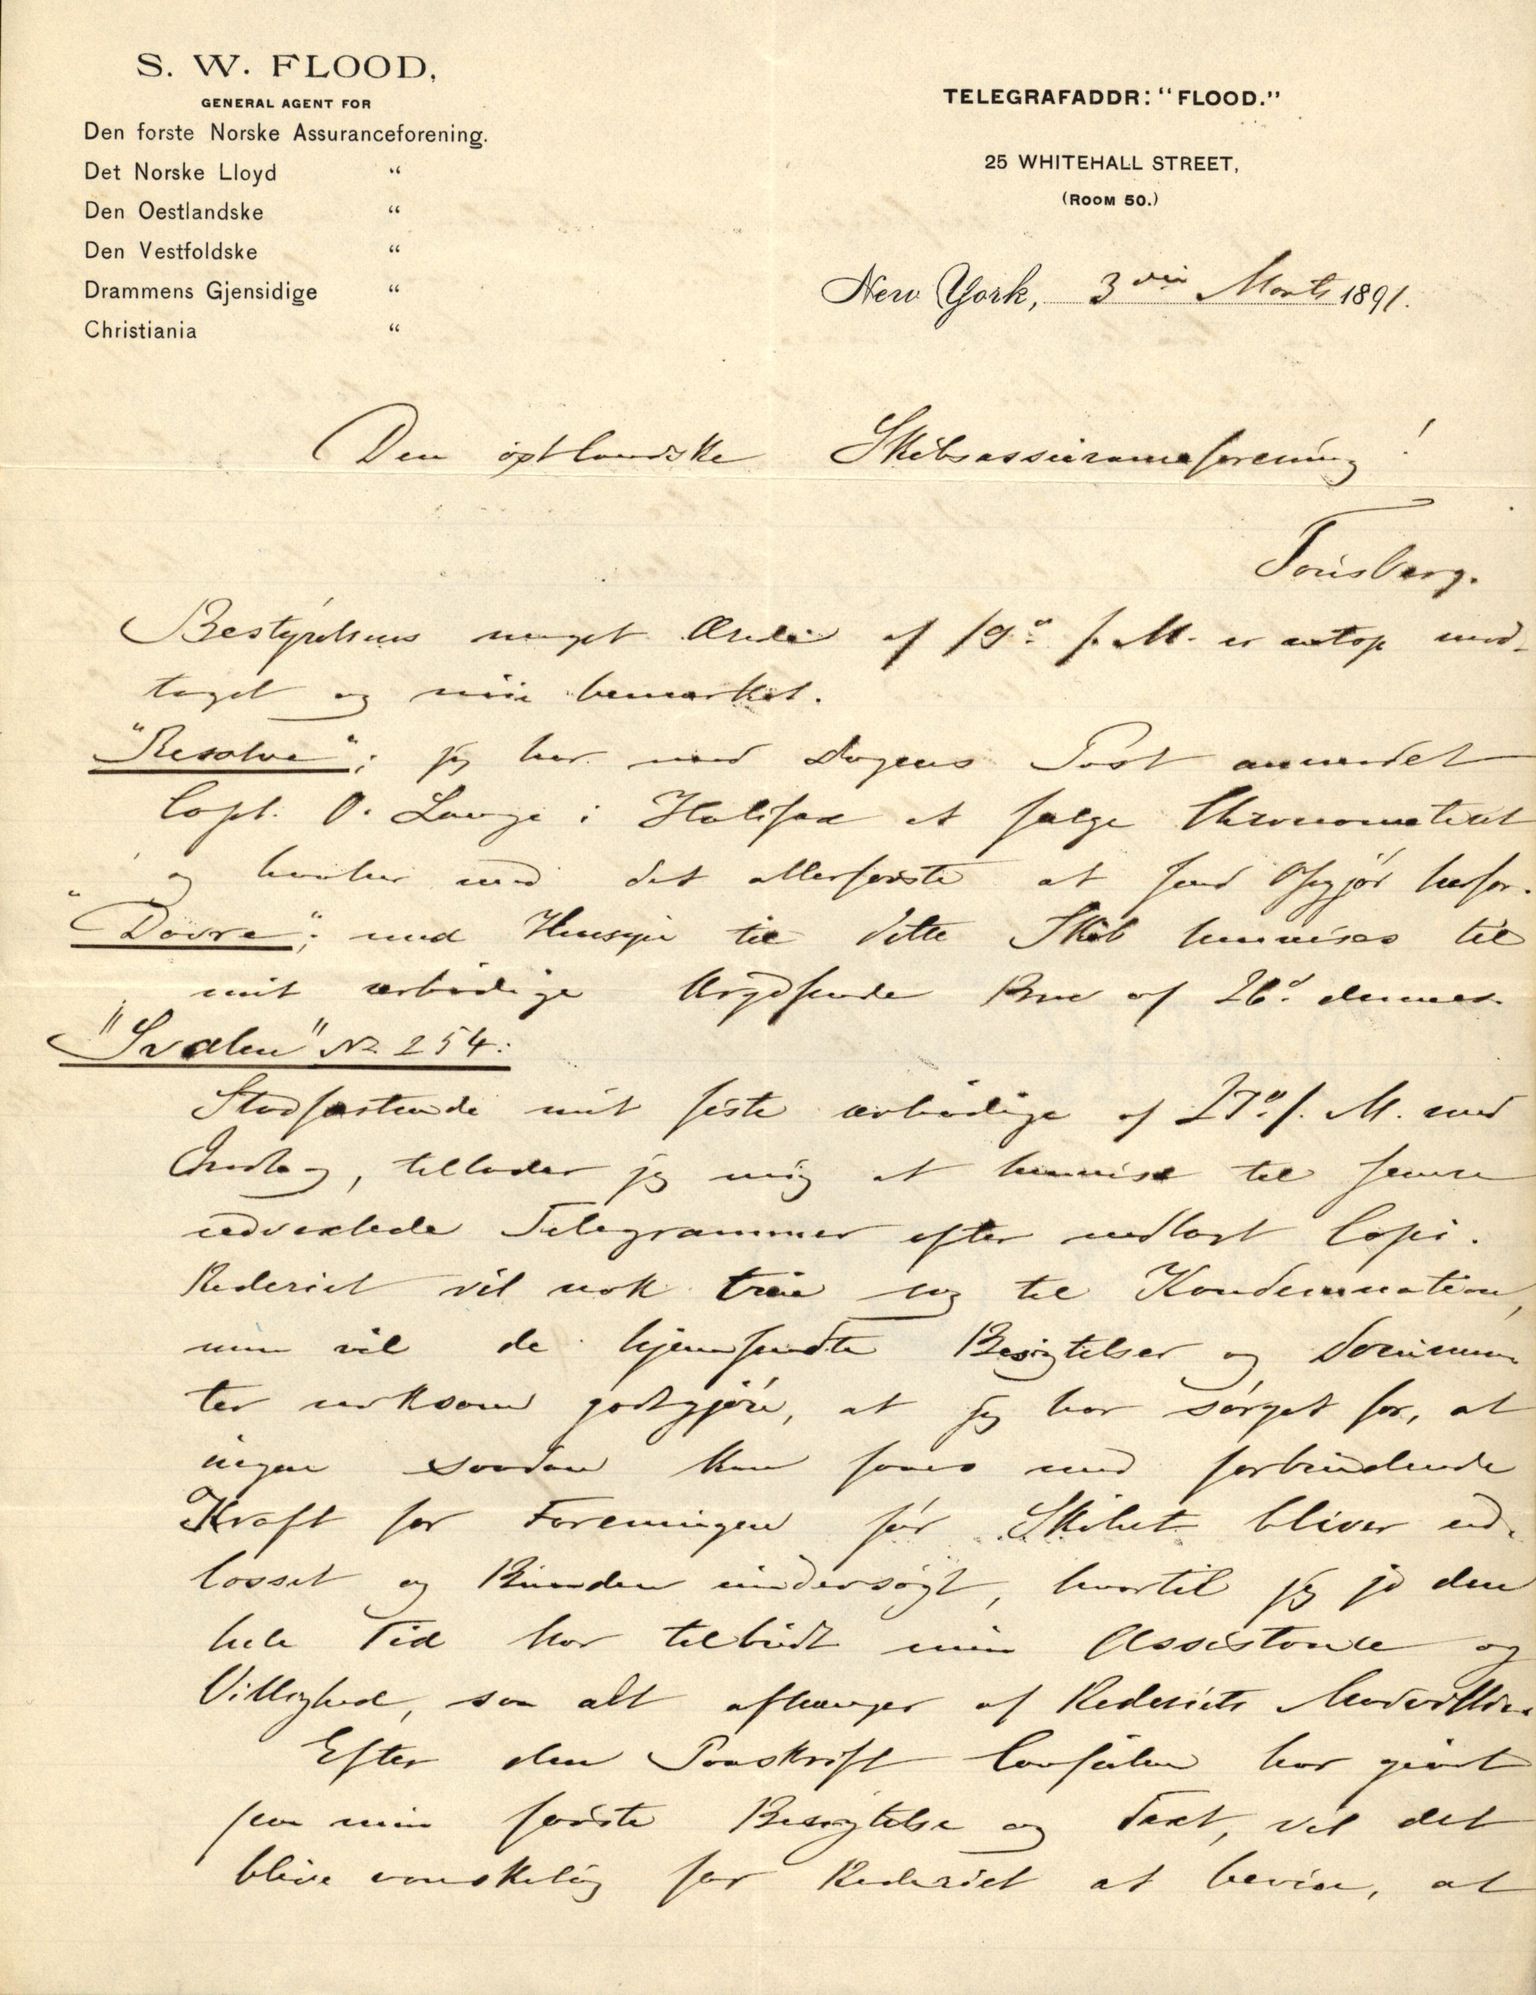 S. W. FLOOD,
GENERAL AGENT FOR
Den forste Norske Assuranceforening.
Det Norske Lloyd "
Den Oestlandske "
Den Vestfoldske "
Drammens Gjensidige "
Christiania "
TELEGRAFADDR: "FLOOD."
25 WHITEHALL STREET,
(ROOM 50.)
New York, 3die Marts 1891.
Den østlandske Skibsassuranceforening!
Tønsberg.
Bestyrelsens meget Ærede af 19d f. M. er mod-
taget og nøie bemærket.
"Resolve"; jeg har med Dagens Post anmodet
Capt. O. Lange i Halifax at sælge Chronometeret
og haaber med det allerførste at send Opgjør herfor.
"Dovre"; med Hensyn til dette Skib henvises til
mit ærbødige Brev af 26d dennes
"Svalen" No 254:
Stadfæstende mit siste ærbødige af 27d f. M. med
Indlæg, tillader jeg mig at henvise til senere
udvexlede Telegrammer efter vedlagt Copi.
Rederiet vil nok true sig til Kondemnation,
men vil de hjemsendte Besigtelser og Documen
ter noksom godtgjøre, at jeg har sørget for, at
ingen saadan kan faaes med forbindende
Kraft for Foreningen før Skibet bliver ud-
losset og Bunden undersøgt, hvortil jeg jo den
hele Tid har tilbudt min Assistance og
Villighed, saa alt afhænger af Rederiets
Efter den Paaskrift Consulen har gjort
paa min første Besigtelse og Taxt, vil det
blive vanskelig for Rederiet at bevise, at